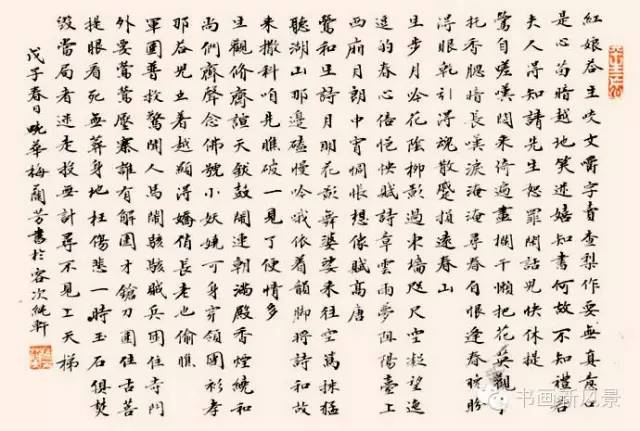 紅娘咨生咬文嚼字賣查梨作耍無真意
是心苗暗越地笑述嬉知書何故不知禮君
夫人得知請先生恕罪閒話兒快休提
鶯自嗟嘆閒來倚遍畫欄干懶把花英觀手
托香腮暗長嘆淚淹淹尋春自恨逢春晚盼
得眼乾引得魂散蹙損遠春山
生步月吟花陰柳影過東墻咫尺空凝望逸
逗的春心倍悒怏賦詩章雲雨夢阻陽臺上
西廂月朗中宵惆悵想像賦高唐
鶯和生詩月明花影舞婆娑來往空萬猛
聽湖山那邊磕慢吟哦依着韻脚將詩和故
來撒科咱先瞧破一見了便情多
生觀脩齋諠天鈸鼓鬧連朝滿殿香煙繞和
尚們齋聲念佛號小妖嬈可身穿領團衫孝
那兒上着越顯得嬌俏長老也偷瞧
軍圍普救驚聞人馬鬧駭駭賊兵圍住寺門
外要鶯鶯壓寨誰有解圍才鎗刀圍住古菩
提眼看死無葬身地枉傷悲一時玉石俱焚
毀當局者迷走投無計尋不見上天梯
戊子春日畹華梅蘭芳書於容次純軒
书画新风景